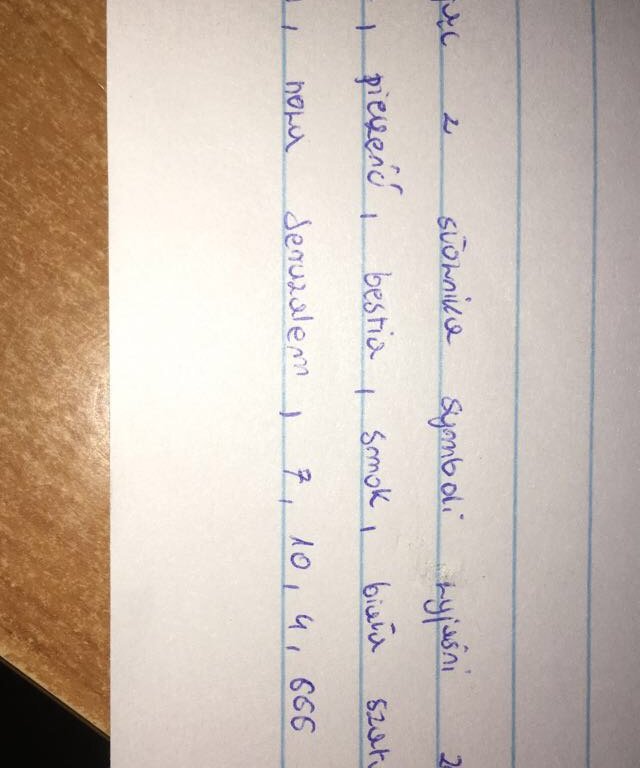 z słownika symboli wyjaśni
, pieczęć, bestia, smok, biała szat
, nowa Jeruzalem, 7, 10, 4, 666